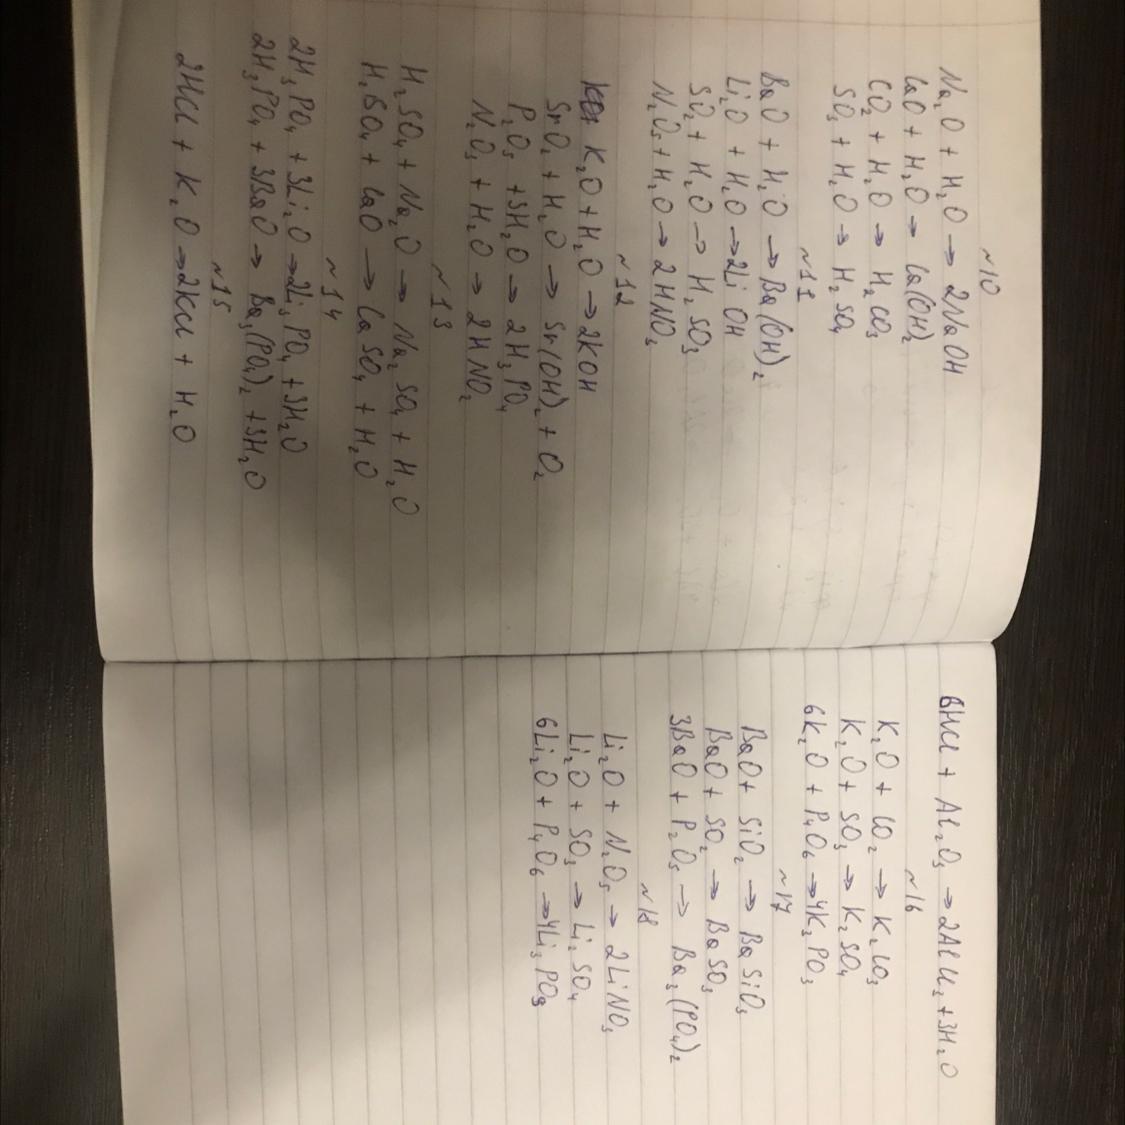 ~10
Na₂O + H₂O → 2NaOH
CaO + H₂O → Ca(OH)₂
CO₂ + H₂O → H₂CO₃
SO₃ + H₂O → H₂SO₄
~11
BaO + H₂O → Ba(OH)₂
Li₂O + H₂O → 2LiOH
SO₂ + H₂O → H₂SO₃
N₂O₅ + H₂O → 2HNO₃
~12
K₂O + H₂O → 2KOH
SrO₂ + H₂O → Sr(OH)₂ + O₂
P₂O₅ + 3H₂O → 2H₃PO₄
N₂O₃ + H₂O → 2HNO₂
~13
H₂SO₄ + Na₂O → Na₂SO₄ + H₂O
H₂SO₄ + CaO → CaSO₄ + H₂O
~14
2H₃PO₄ + 3Li₂O → 2Li₃PO₄ + 3H₂O
2H₃PO₄ + 3BaO → Ba₃(PO₄)₂ + 3H₂O
~15
2HCl + K₂O → 2KCl + H₂O
6HCl + Al₂O₃ → 2AlCl₃ + 3H₂O
~16
K₂O + CO₂ → K₂CO₃
K₂O + SO₃ → K₂SO₄
6K₂O + P₄O₆ → 4K₃PO₃
~17
BaO + SiO₂ → BaSiO₃
BaO + SO₂ → BaSO₃
3BaO + P₂O₅ → Ba₃(PO₄)₂
~18
Li₂O + N₂O₅ → 2LiNO₃
Li₂O + SO₃ → Li₂SO₄
6Li₂O + P₄O₆ → 4Li₃PO₃